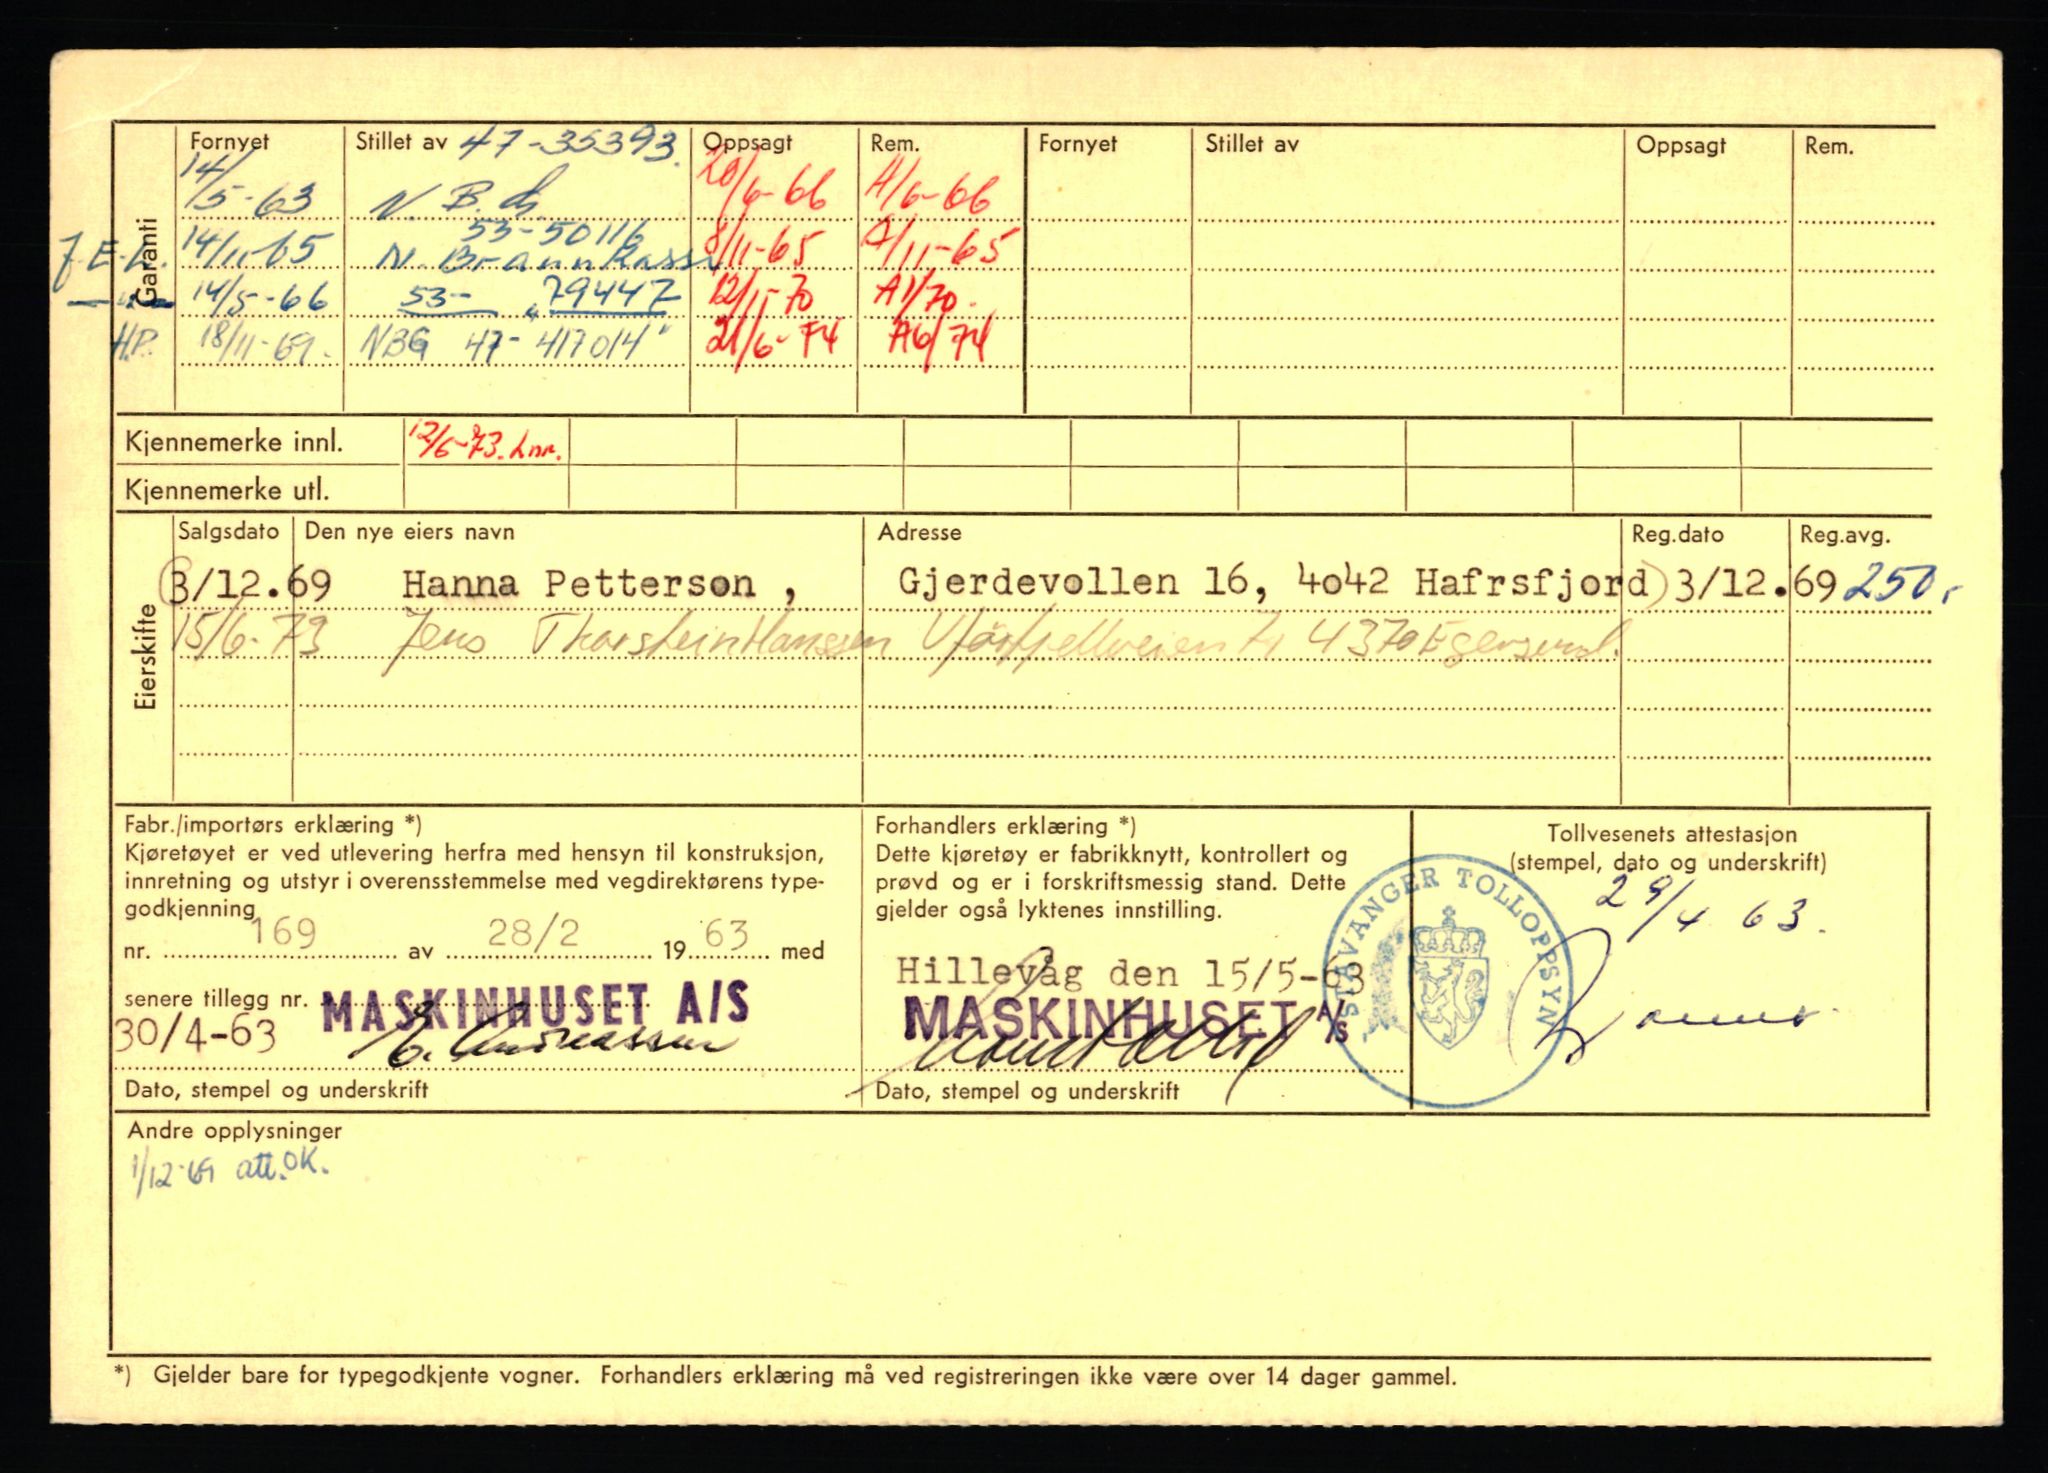 Garanti
Fornyet Stillet av 47-35393. Oppsagt Rem. Fornyet Stillet av Oppsagt Rem.
14/5-63 N. B. 20/6-66 A/6-66
53-50116
J.E.L. 14/11-65 N. Brannkasse 8/11-65 A/11-65
14/5-66 53- „79447 12/1-70 A1/70.
H.P. 18/11-69. NBG 47-417014" 21/6-74 A6/74
Kjennemerke innl. 12/6-73. Lnr.
Kjennemerke utl.
Eierskifte
Salgsdato Den nye eiers navn Adresse Reg.dato Reg.avg.
(3/12.69 Hanna Petterson , Gjerdevollen 16, 4042 Hafrsfjord) 3/12.69 250,-
15/6-73 Jens Thorstein Hanssen 4370 Egersund.
Fabr./importørs erklæring *)
Kjøretøyet er ved utlevering herfra med hensyn til konstruksjon,
innretning og utstyr i overensstemmelse med vegdirektørens type-
godkjenning
nr. 169 av 28/2 1963 med
senere tillegg nr.
MASKINHUSET A/S
30/4-63 E. Andreassen
Dato, stempel og underskrift
Forhandlers erklæring *)
Dette kjøretøy er fabrikknytt, kontrollert og
prøvd og er i forskriftsmessig stand. Dette
gjelder også lyktenes innstilling.
Hillevåg den 15/5-63
MASKINHUSET A/S
Dato, stempel og underskrift
Tollvesenets attestasjon
(stempel, dato og underskrift)
29/4 63.
STAVANGER TOLLOPPSYN
Andre opplysninger
1/12-69 att. OK.
*) Gjelder bare for typegodkjente vogner. Forhandlers erklæring må ved registreringen ikke være over 14 dager gammel.